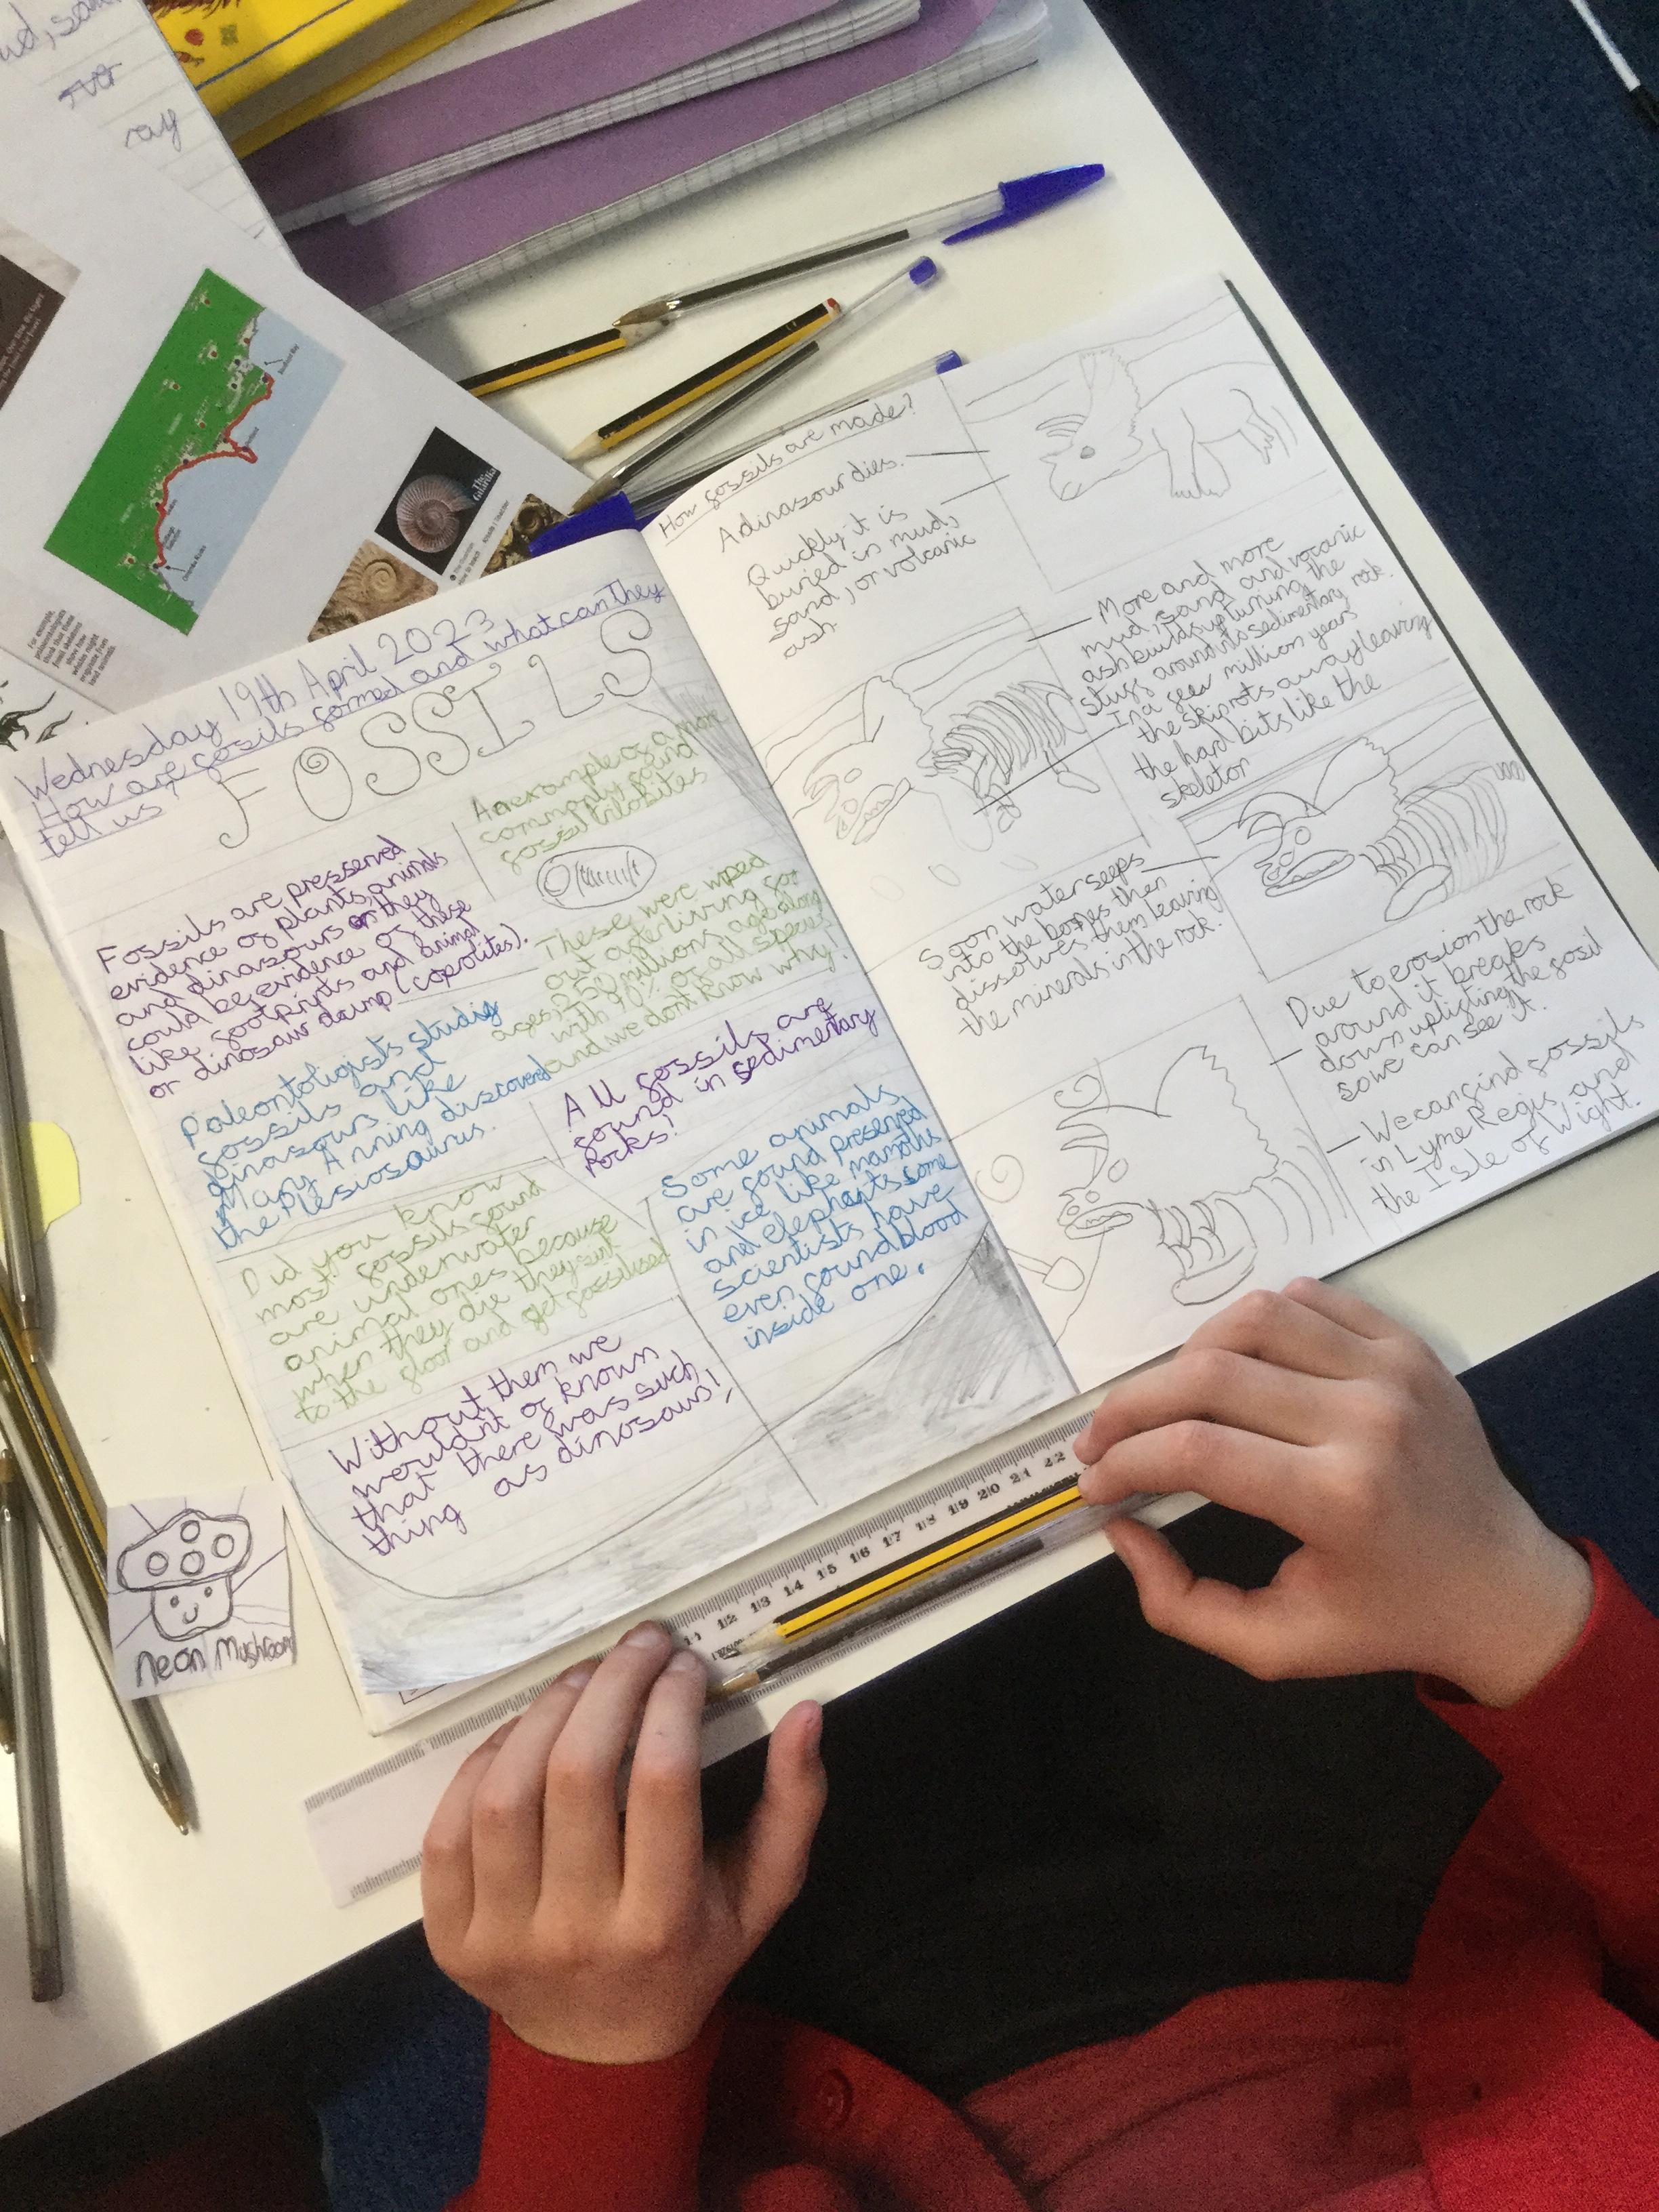 Wednesday 19th April 2023
How are fossils formed and what can they
tell us?
FOSSILS
Fossils are preserved
evidence of plants, animals
and dinasours or they
could be evidence of these
like footprints and animal
or dinosaur dump (coprolites).
An example of a more
commonly found
fossil trilobites
These were wiped
out after living for
ages, 252 millions ago along
with of all species
and we dont know why!
Paleontoligists studig
fossils and
dinasours like
Mary Anning discovered
the Plesiosaurus.
All fossils are
found in sedimentary
rocks!
Did you know
most fossils found
are underwater
animal ones because
when they die they sink
to the floor and get fossilised
Some animals
are found preserved
in ice like mamoths
and elephants some
scientists have
even found blood
inside one.
Without them we
wouldnt of known
that there was such
thing as dinosaurs!
How fossils are made?
A dinasour dies.
Quickly it is
buried in mud,
sand, or volcanic
ash.
More and more
mud, sand and volcanic
ash builds up turning the
stuff around into sedimentary rock.
In a few million years
the skin rots away leaving
the hard bits like the
skeleton
Soon water seeps
into the bones then
dissolves them leaving
the minerals in the rock.
Due to erosion the rock
around it breaks
down uplifting the fossil
so we can see it.
We can find fossils
in Lyme Regis and
the Isle of Wight.
neon Mushroom
11 12 13 14 15 16 17 18 19 20 21 22
The
Guardian
ray